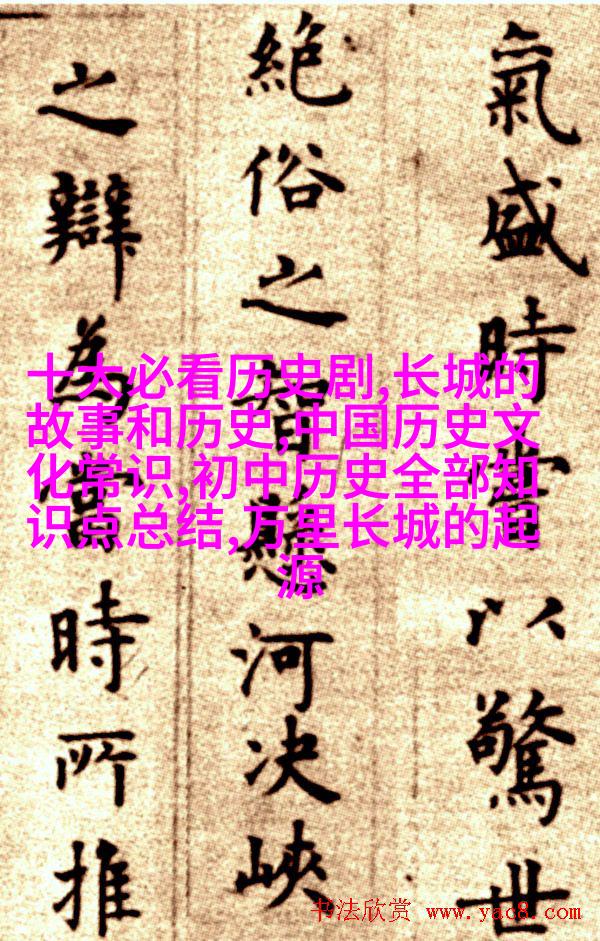 氣盛時以驚世
絶俗之智懸河决峽
之辯為當時所推
十大必看历史剧,长城的
故事和历史,中国历史文
化常识,初中历史全部知
识点总结,万里长城的起
源
书法欣赏 www.yac8.com